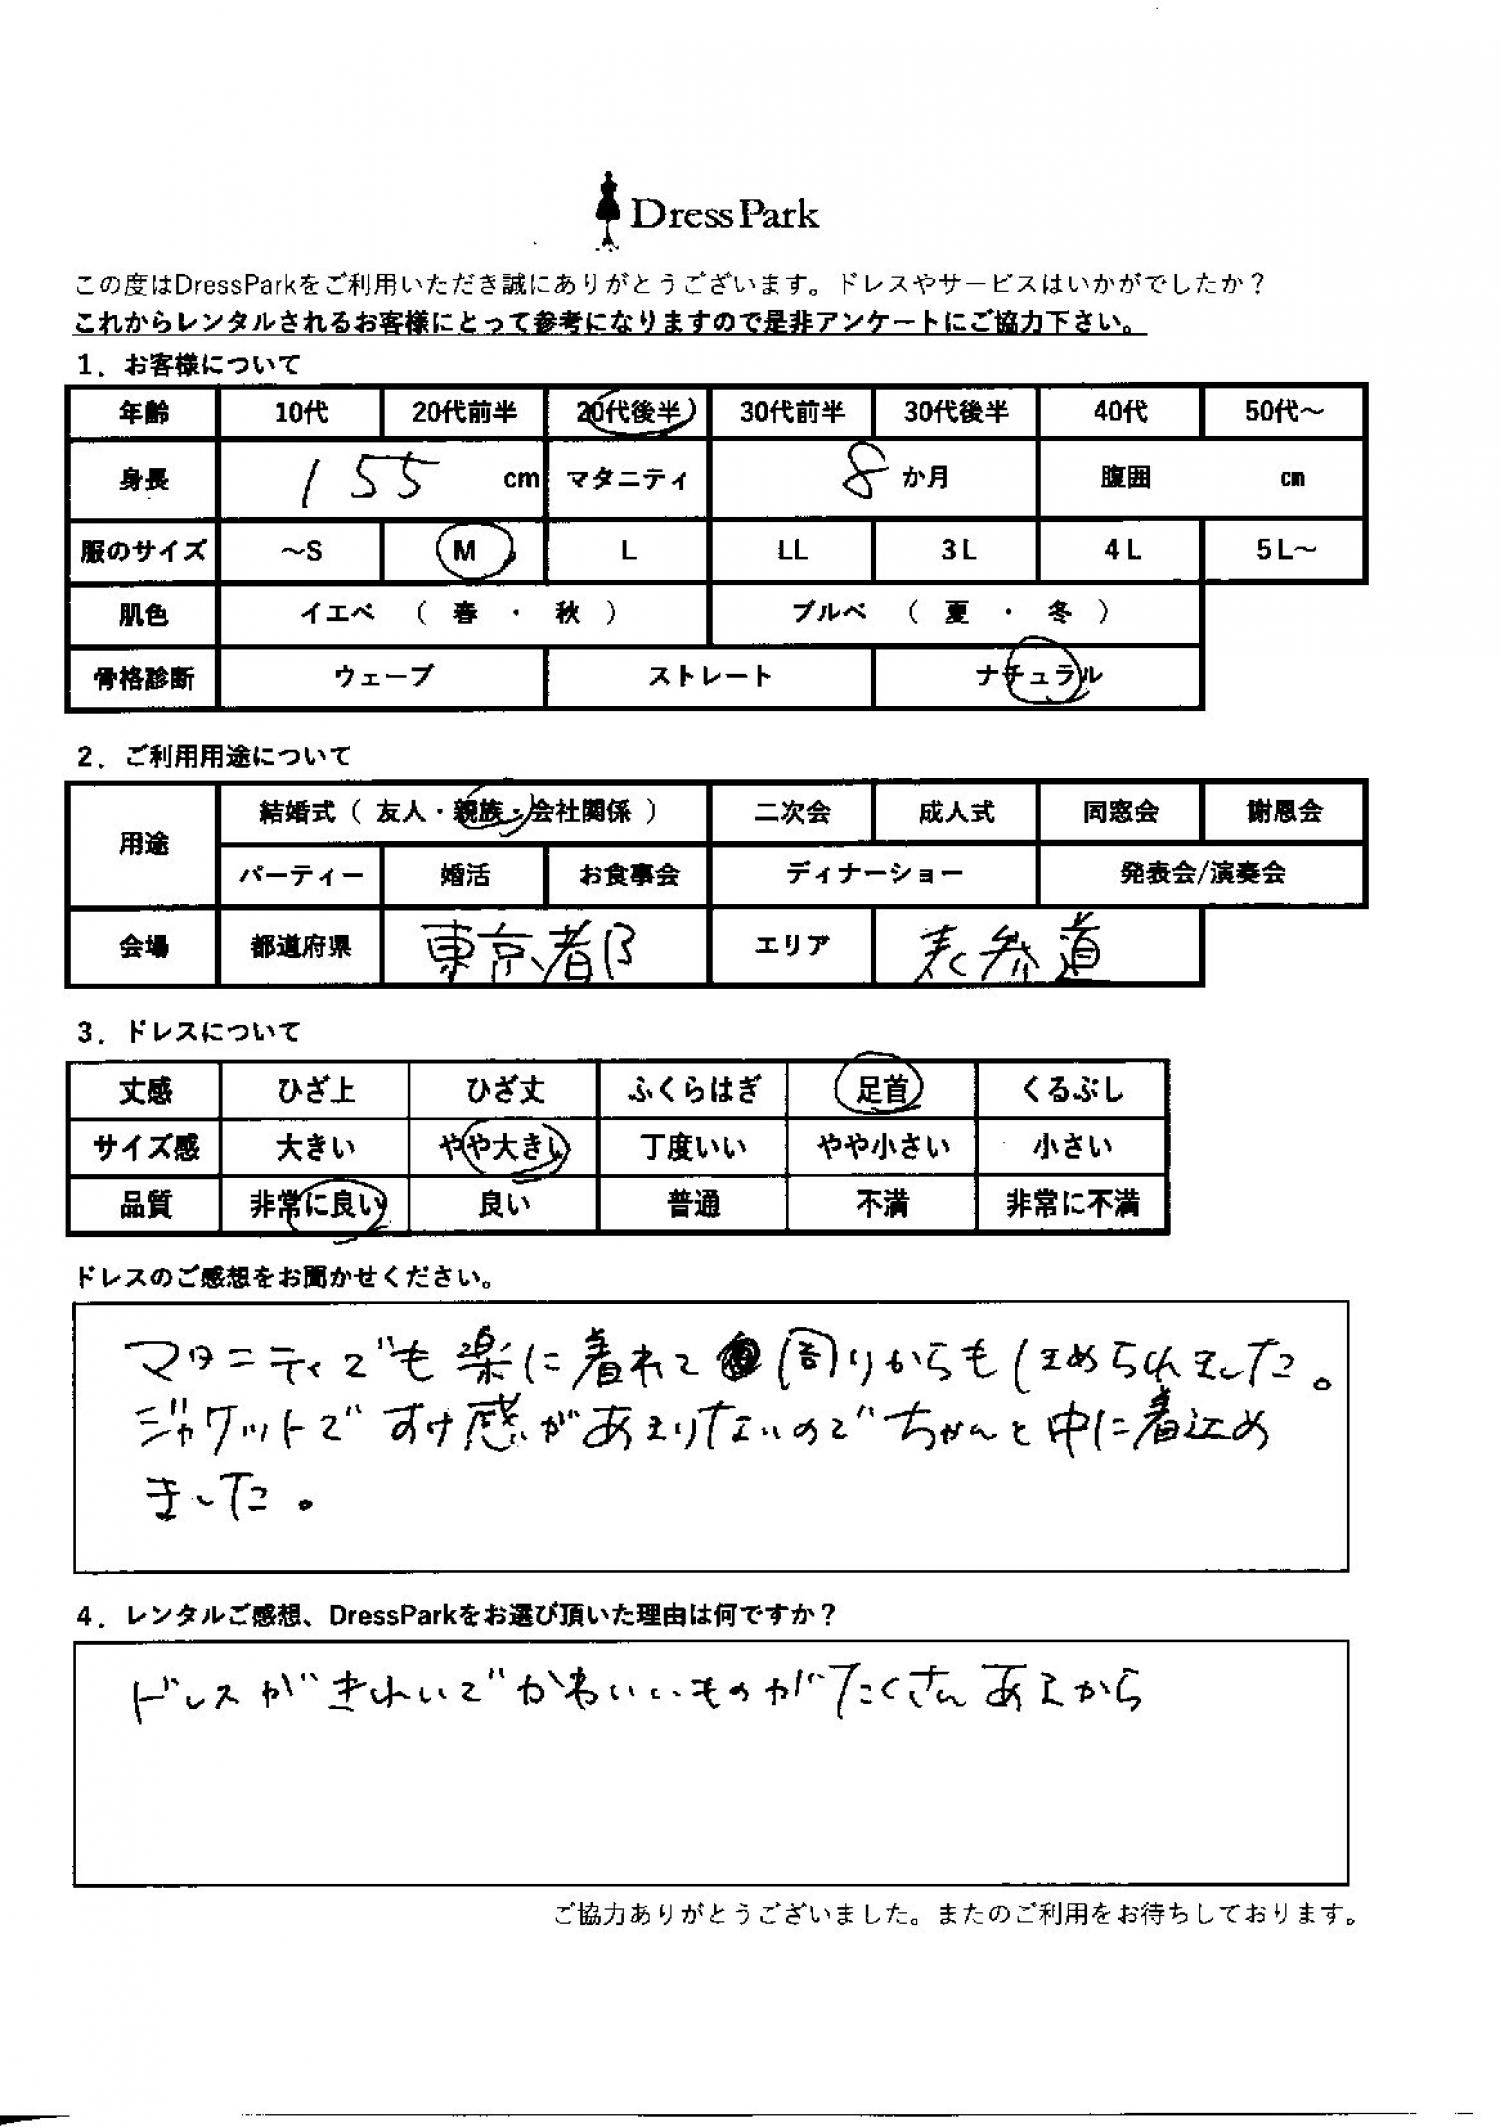 DressPark
この度はDressParkをご利用いただき誠にありがとうございます。ドレスやサービスはいかがでしたか？
これからレンタルされるお客様にとって参考になりますので是非アンケートにご協力下さい。
1．お客様について
年齢 10代 20代前半 20代後半 30代前半 30代後半 40代 50代～
身長 155 cm マタニティ 8 か月 腹囲 cm
服のサイズ ～S M L LL 3L 4L 5L～
肌色 イエベ （ 春 ・ 秋 ） ブルベ （ 夏 ・ 冬 ）
骨格診断 ウェーブ ストレート ナチュラル
2．ご利用用途について
用途 結婚式（ 友人・親族・会社関係 ） 二次会 成人式 同窓会 謝恩会
パーティー 婚活 お食事会 ディナーショー 発表会/演奏会
会場 都道府県 東京都 エリア 表参道
3．ドレスについて
丈感 ひざ上 ひざ丈 ふくらはぎ 足首 くるぶし
サイズ感 大きい やや大きい 丁度いい やや小さい 小さい
品質 非常に良い 良い 普通 不満 非常に不満
ドレスのご感想をお聞かせください。
マタニティでも楽に着れて周りからもほめられました。
ジャケットですけ感があまりないのでちゃんと中に着込め
ました。
4．レンタルご感想、DressParkをお選び頂いた理由は何ですか？
ドレスがきれいでかわいいものがたくさんあるから
ご協力ありがとうございました。またのご利用をお待ちしております。